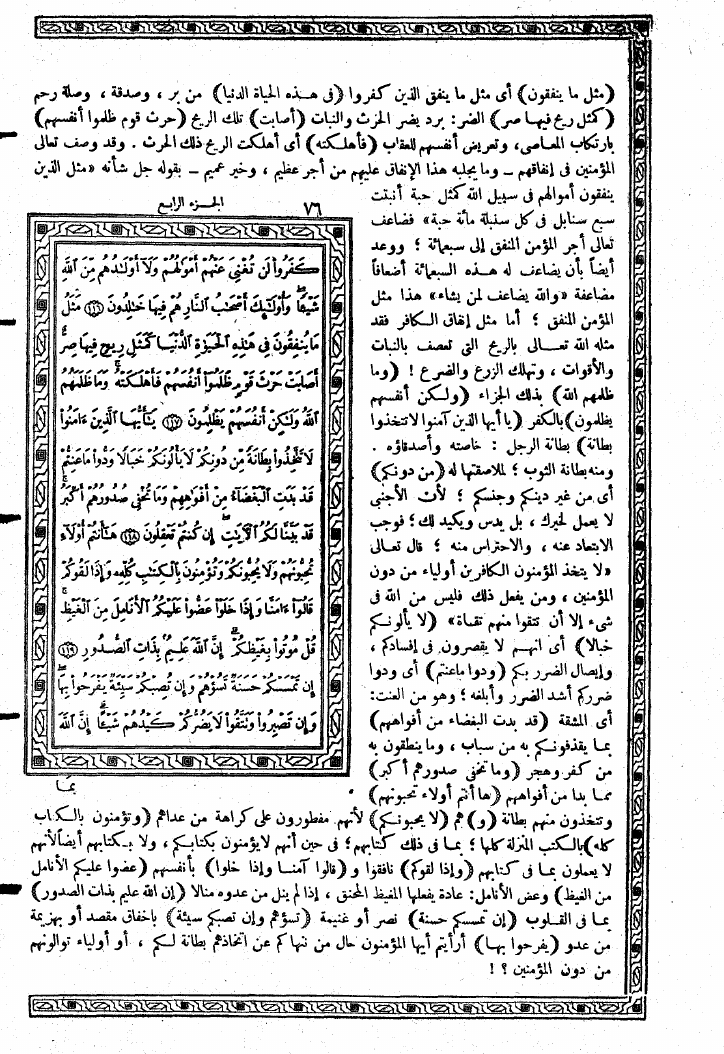 (مثل ما ينفقون) أى مثل ما ينفق الذين كفروا (فى هذه الحياة الدنيا) من بر ، وصدقة ، وصلة رحم
(كمثل ريح فيها صر) الصر: برد يضر الحرث والنبات (أصابت) تلك الريح (حرث قوم ظلموا أنفسهم)
بارتكاب المعاصى، وتعريض أنفسهم للعقاب (فأهلكته) أى أهلكت الريح ذلك الحرث . وقد وصف تعالى
المؤمنين فى إنفاقهم – وما يجلبه هذا الإنفاق عليهم من أجر عظيم ، وخير عميم – بقوله جل شأنه «مثل الذين
ينفقون أموالهم فى سبيل الله كمثل حبة أنبتت
سبع سنابل فى كل سنبلة مائة حبة» فضاعف
تعالى أجر المؤمن المنفق إلى سبعمائة ؛ ووعد
أيضاً بأن يضاعف له هذه السبعمائة أضعافاً
مضاعفة «والله يضاعف لمن يشاء» هذا مثل
المؤمن المنفق ؛ أما مثل إنفاق الكافر فقد
مثله الله تعالى بالريح التى تعصف بالنبات
والأقوات ، وتهلك الزرع والضرع ! (وما
ظلمهم الله) بذلك الجزاء (ولكن أنفسهم
يظلمون) بالكفر (يا أيها الذين آمنوا لاتتخذوا
بطانة) بطانة الرجل : خاصته وأصدقاؤه .
ومنه بطانة الثوب ؛ لملاصقتها له (من دونكم)
أى من غير دينكم وجنسكم ؛ لأن الأجنبى
لا يعمل لخيرك ، بل يدس ويكيد لك؛ فوجب
الابتعاد عنه ، والاحتراس منه ؛ قال تعالى
«لا يتخذ المؤمنون الكافرين أولياء من دون
المؤمنين ، ومن يفعل ذلك فليس من الله فى
شىء إلا أن تتقوا منهم تقاة» (لا يألونكم
خبالا) أى انهم لا يقصرون فى إفسادكم ،
وإيصال الضرر بكم (ودوا ماعنتم) أى ودوا
ضرركم أشد الضرر وأبلغه ؛ وهو من العنت:
أى المشقة (قد بدت البغضاء من أفواههم)
بما يقذفونكم به من سباب ، وما ينطقون به
من كفر وهجر (وما تخفى صدورهم أكبر)
مما بدا من أفواههم (ها أنتم أولاء تحبونهم)
٧٦ الجزء الرابع
كَفَرُوا۟ لَن تُغْنِىَ عَنْهُمْ أَمْوَٰلُهُمْ وَلَآ أَوْلَٰدُهُم مِّنَ ٱللَّهِ
شَيْـًٔا ۖ وَأُو۟لَٰٓئِكَ أَصْحَٰبُ ٱلنَّارِ هُمْ فِيهَا خَٰلِدُونَ ﴿١١٦﴾ مَثَلُ
مَا يُنفِقُونَ فِى هَٰذِهِ ٱلْحَيَوٰةِ ٱلدُّنْيَا كَمَثَلِ رِيحٍ فِيهَا صِرٌّ
أَصَابَتْ حَرْثَ قَوْمٍ ظَلَمُوٓا۟ أَنفُسَهُمْ فَأَهْلَكَتْهُ ۚ وَمَا ظَلَمَهُمُ
ٱللَّهُ وَلَٰكِنْ أَنفُسَهُمْ يَظْلِمُونَ ﴿١١٧﴾ يَٰٓأَيُّهَا ٱلَّذِينَ ءَامَنُوا۟
لَا تَتَّخِذُوا۟ بِطَانَةً مِّن دُونِكُمْ لَا يَأْلُونَكُمْ خَبَالًا وَدُّوا۟ مَا عَنِتُّمْ
قَدْ بَدَتِ ٱلْبَغْضَآءُ مِنْ أَفْوَٰهِهِمْ وَمَا تُخْفِى صُدُورُهُمْ أَكْبَرُ ۚ
قَدْ بَيَّنَّا لَكُمُ ٱلْءَايَٰتِ ۖ إِن كُنتُمْ تَعْقِلُونَ ﴿١١٨﴾ هَٰٓأَنتُمْ أُو۟لَآءِ
تُحِبُّونَهُمْ وَلَا يُحِبُّونَكُمْ وَتُؤْمِنُونَ بِٱلْكِتَٰبِ كُلِّهِۦ وَإِذَا لَقُوكُمْ
قَالُوٓا۟ ءَامَنَّا وَإِذَا خَلَوْا۟ عَضُّوا۟ عَلَيْكُمُ ٱلْأَنَامِلَ مِنَ ٱلْغَيْظِ ۚ
قُلْ مُوتُوا۟ بِغَيْظِكُمْ ۗ إِنَّ ٱللَّهَ عَلِيمٌۢ بِذَاتِ ٱلصُّدُورِ ﴿١١٩﴾
إِن تَمْسَسْكُمْ حَسَنَةٌ تَسُؤْهُمْ وَإِن تُصِبْكُمْ سَيِّئَةٌ يَفْرَحُوا۟ بِهَا ۖ
وَإِن تَصْبِرُوا۟ وَتَتَّقُوا۟ لَا يَضُرُّكُمْ كَيْدُهُمْ شَيْـًٔا ۗ إِنَّ ٱللَّهَ
بِمَا
وتتخذون منهم بطانة (و) هم (لا يحبونكم) لأنهم مفطورون على كراهة من عداهم (وتؤمنون بالكتاب
كله) بالكتب المنزلة كلها ؛ بما فى ذلك كتابهم ؛ فى حين أنهم لايؤمنون بكتابكم ، ولا بكتابهم أيضاً لأنهم
لا يعملون بما فى كتابهم (وإذا لقوكم) نافقوا و (قالوا آمنا وإذا خلوا) بأنفسهم (عضوا عليكم الأنامل
من الغيظ) وعض الأنامل: عادة يفعلها المغيظ المحنق ، إذا لم ينل من عدوه منالا (إن الله عليم بذات الصدور)
بما فى القلوب (إن تمسسكم حسنة) نصر أو غنيمة (تسؤهم وإن تصبكم سيئة) بإخفاق مقصد أو بهزيمة
من عدو (يفرحوا بها) أرأيتم أيها المؤمنون حال من نهاكم عن اتخاذهم بطانة لكم ، أو أولياء توالونهم
من دون المؤمنين ؟ !